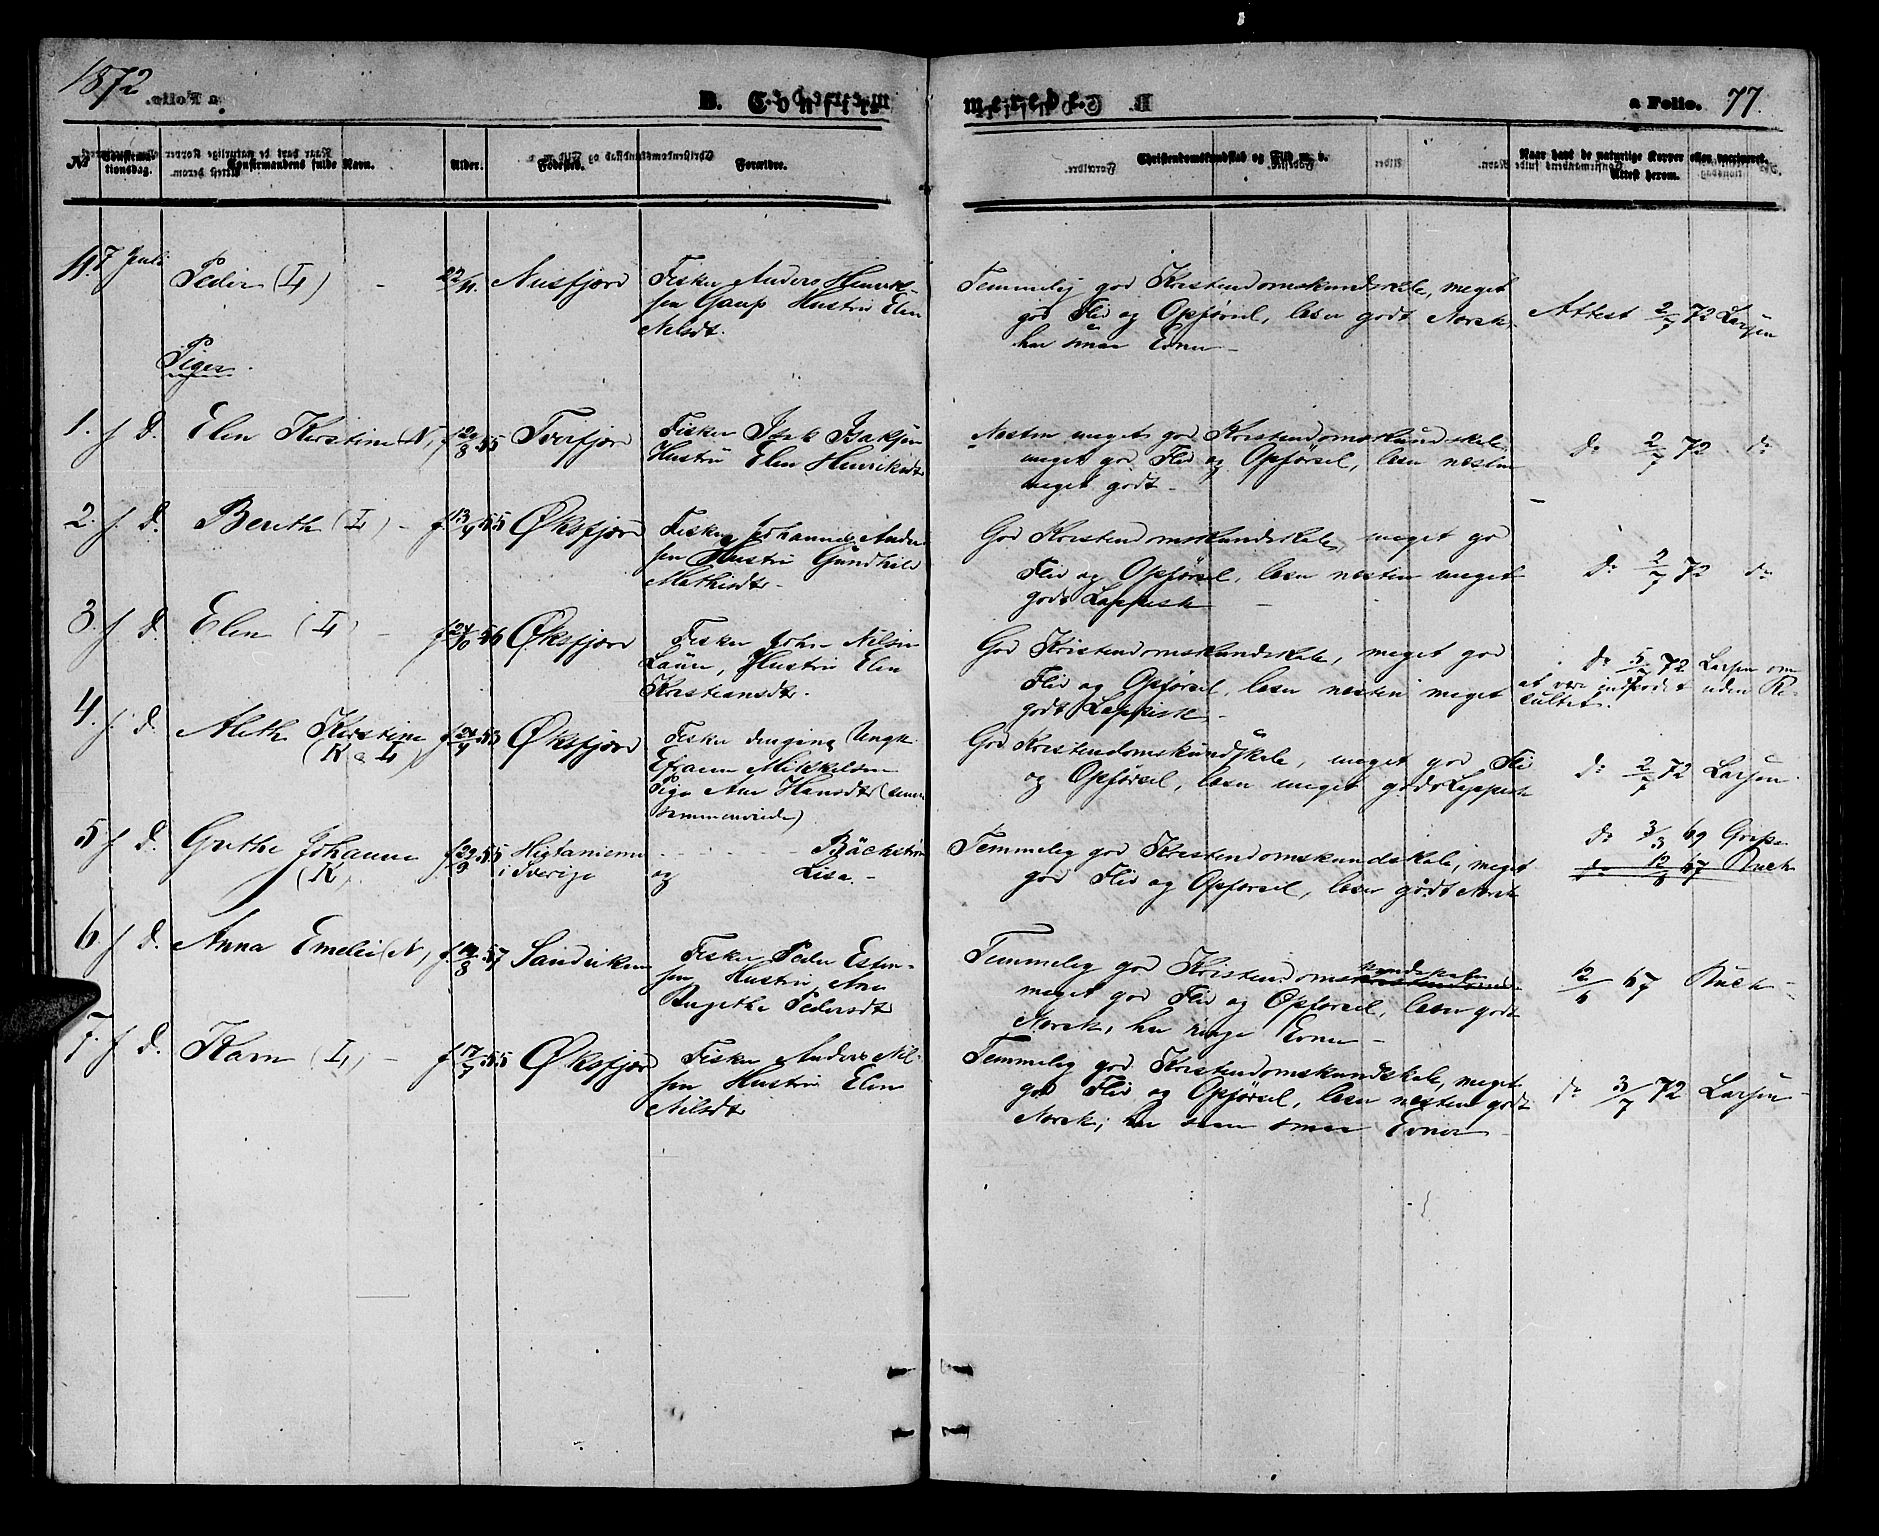 1872
D. Confir-
merede.
a Folio. 77.
No Confirma-tionsdag. Konfirmandens fulde Navn. Alder. Fødested. Forældre. Christendomskundskab og Flid m. v. Naar havt de naturlige Kopper eller vaccineret. Attest herom.
11. 7 Juli Peder (L) - 22/11. Nusfjord Fisker Anders Henrik-
sen Gaup Hustru Elen
Nilsdt.
Temmelig god Kristendomskundskab, meget
god Flid og Opførsel, læser godt Norsk,
har smaa Evner -
Attest 2/7 72 Larsen
Piger.
1. f. D. Elen Kirstine (N) f. 20/8 55 Tverfjord Fisker Isak Isaksen
Hustru Elen Henriksdt
Næsten meget god Kristendomskundskab,
meget god Flid og Opførsel, læser næsten
meget godt -
do 2/7 72 do
2. f. D. Berith (L) - f. 13/4 55 Øksfjord Fisker Johannes Ander-
sen Hustru Gundhild
Mathisdt.
God Kristendomskundskab, meget god
Flid og Opførsel, læser næsten meget
godt Lappisk -
do 2/7 72 do
3. f. D. Elen (L) - f. 24/10 56 Øksfjord Fisker John Nilsen
Hustru Elen
Kristiansdt.
God Kristendomskundskab, meget god
Flid og Opførsel, læser næsten meget
godt Lappisk -
do 5/7 72 Larsen om
at være indpodet uden Re-
sultat.
4. f. D. Aleth Kirstine
(K o L) f. 53 Øksfjord Fisker Ungk.
Efraim Mikkelsen
Pige Ane Hansdt (senere
sammenviede)
God Kristendomskundskab, meget god Flid
og Opførsel, læser meget godt Lappisk
do 2/7 72 Larsen.
5. f. D. Grethe Johanne
(K) f. 29/9 55 Hietaniemi
i Sverige Bäckström
og Lisa. -
Temmelig god Kristendomskundskab, meget
god Flid og Opførsel, læser godt Norsk
do 3/3 69
do 12/6 67 Buck
6. f. D. Anna Emelie (N) f. 19/8 57 Sandviken Fisker Peder Esten-
sen Hustru Ane
Birgithe Pedersdt
Temmelig god Kristendomskundskab
meget god Flid og Opførsel, læser godt
Norsk, har ringe Evner -
12/6 67 Buck -
7. f. D. Karn (L) - f. 17/7 55 Øksfjord Fisker Anders Nil-
sen Hustru Elen
Nilsdt
Temmelig god Kristendomskundskab, meget
god Flid og Opførsel, læser næsten godt
Norsk; har smaa Evner -
do 3/7 72 Larsen -